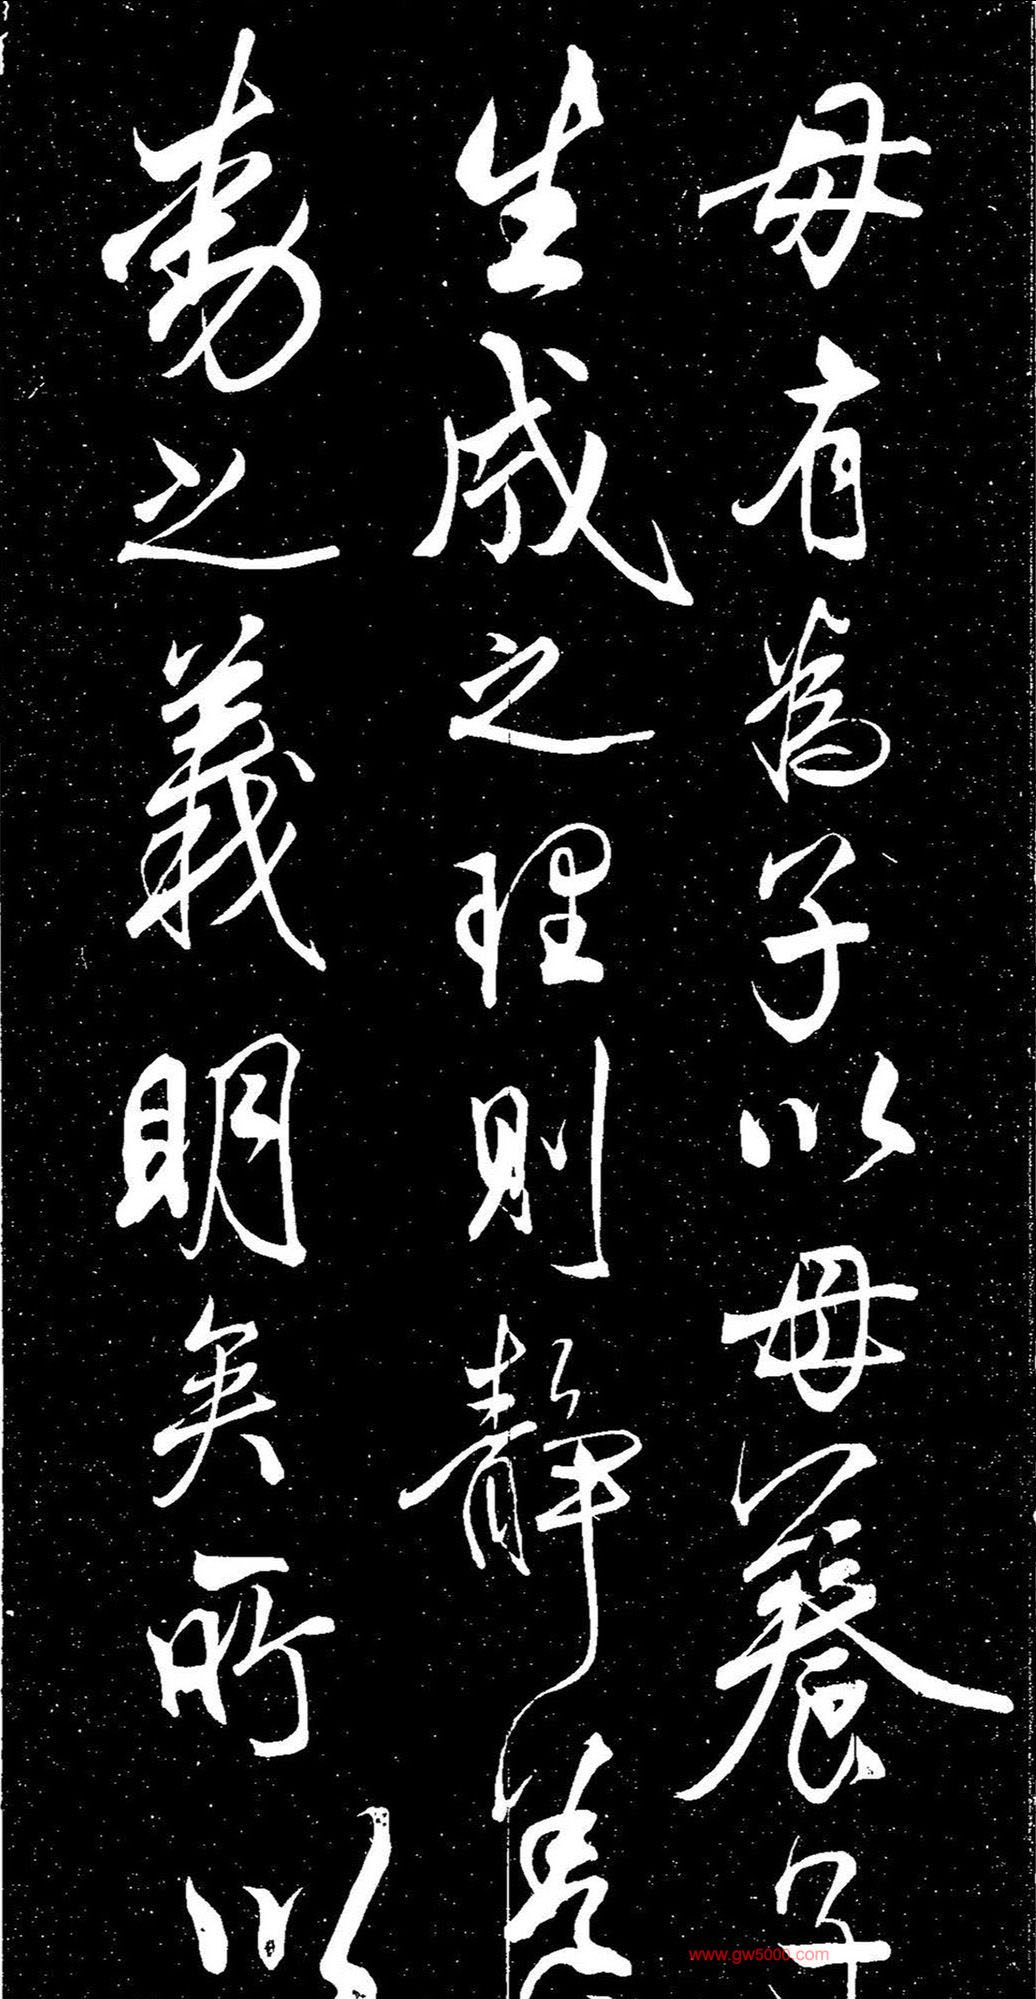 母有為子以母養子
生成之理則靜養
動之義明矣所以
www.gw5000.com